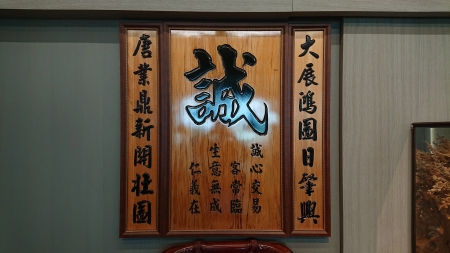 大展鴻圖日肇興
誠
誠心交易
客常臨
生意無成
仁義在
唐業鼎新開壯圖